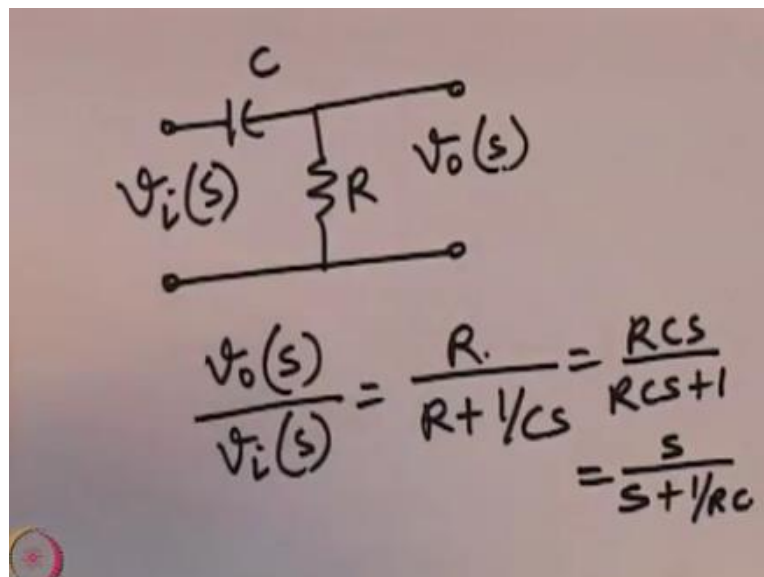 C
Vi(s)
R
Vo(s)
Vo(s)/Vi(s) = R./(R+1/CS) = RCS/(RCS+1)
= S/(S+1/RC)